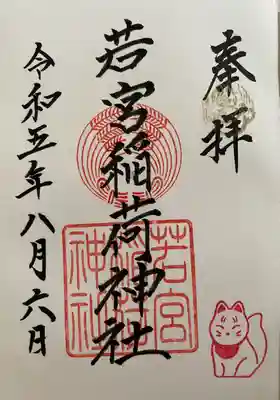 奉拝
若宮稲荷神社
若宮稲荷神社
令和五年八月六日